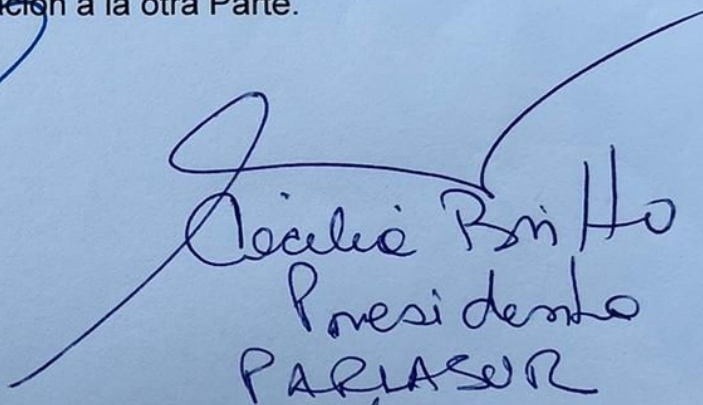 ción a la otra Parte.
Cecilia Britto
Presidenta
PARLASUR